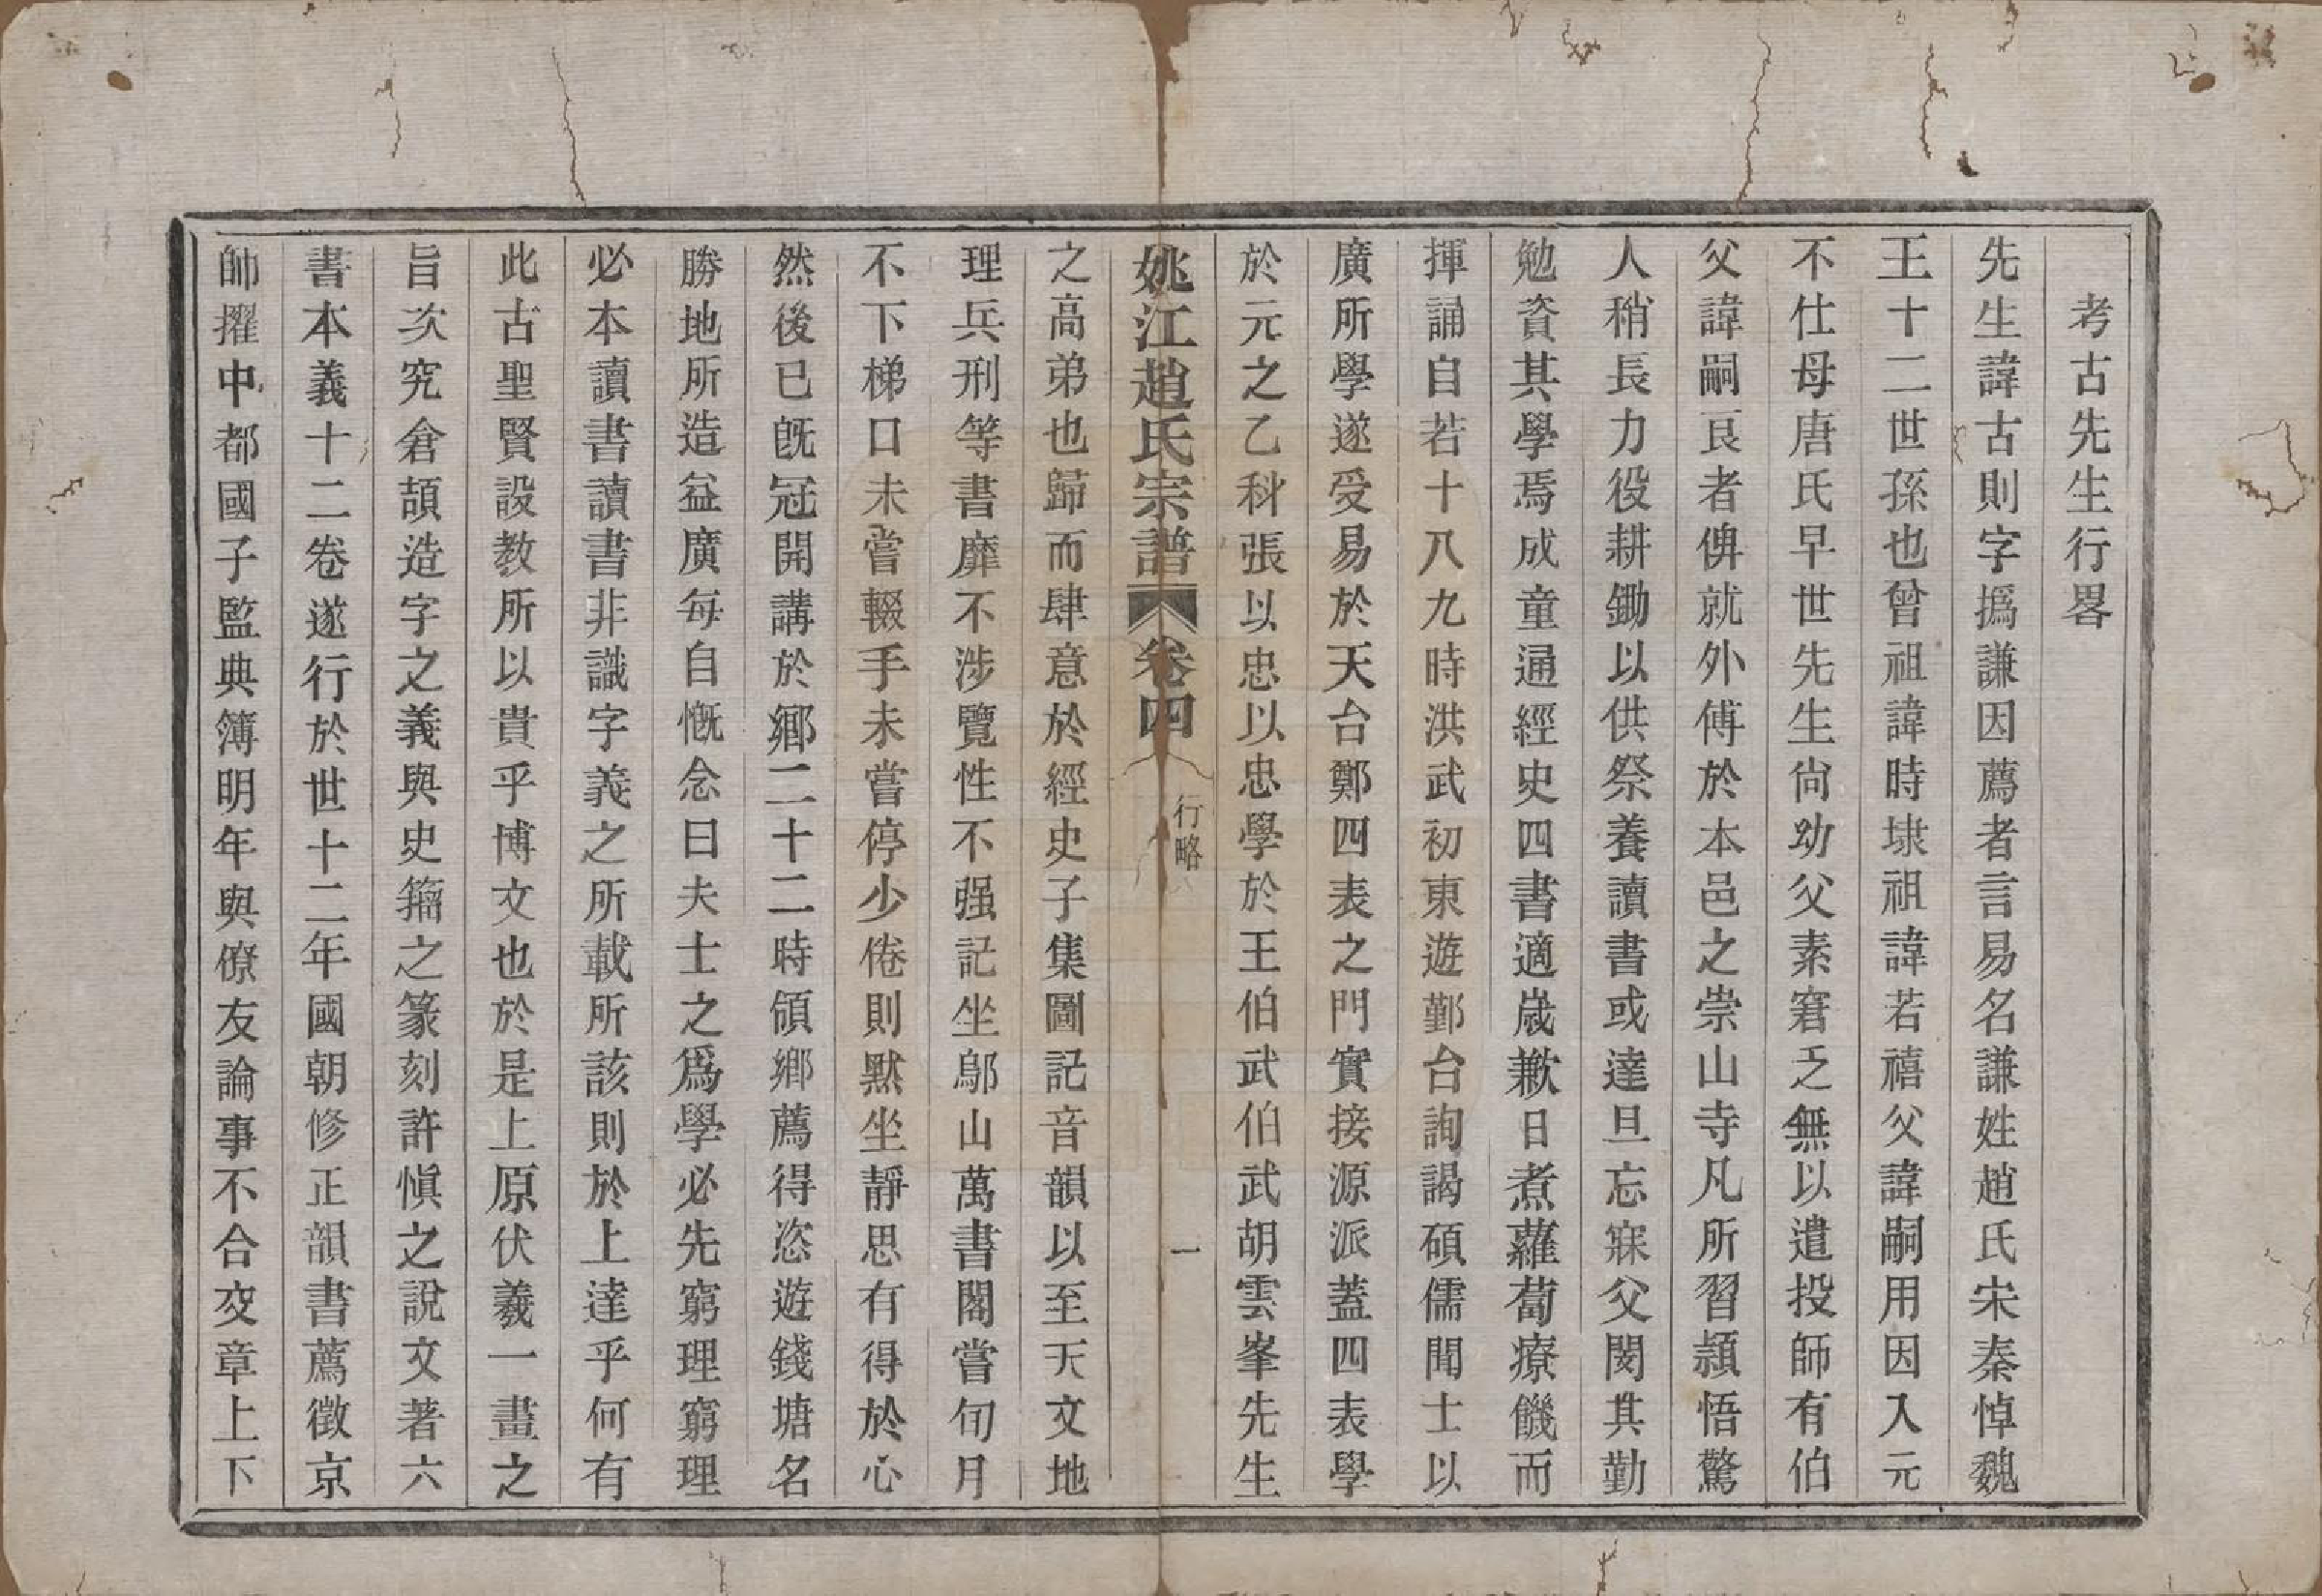 考古先生行畧
先生諱古則字撝謙因薦者言易名謙姓趙氏宋秦悼魏
王十二世孫也曾祖諱時埭祖諱若禧父諱嗣用因入元
不仕母唐氏早世先生尙幼父素窘乏無以遣投師有伯
父諱嗣艮者俾就外傅於本邑之崇山寺凡所習潁悟驚
人稍長力役耕鋤以供祭養讀書或達旦忘寐父閔其勤
勉資其學焉成童通經史四書適歲歉日煮蘿蔔療饑而
揮誦自若十八九時洪武初東遊鄞台詢謁碩儒聞士以
廣所學遂受易於天台鄭四表之門實接源派蓋四表學
於元之乙科張以忠以忠學於王伯武伯武胡雲峯先生
姚江趙氏宗譜 卷四 行略 一
之高弟也歸而肆意於經史子集圖記音韻以至天文地
理兵刑等書靡不涉覽性不强記坐鄔山萬書閣嘗旬月
不下梯口未嘗輟手未嘗停少倦則默坐靜思有得於心
然後已旣冠開講於鄉二十二時領鄉薦得恣遊錢塘名
勝地所造益廣每自慨念曰夫士之爲學必先窮理窮理
必本讀書讀書非識字義之所載所該則於上達乎何有
此古聖賢設教所以貴乎博文也於是上原伏羲一畫之
旨次究倉頡造字之義與史籀之篆刻許愼之說文著六
書本義十二卷遂行於世十二年國朝修正韻書薦徵京
師擢中都國子監典簿明年與僚友論事不合交章上下